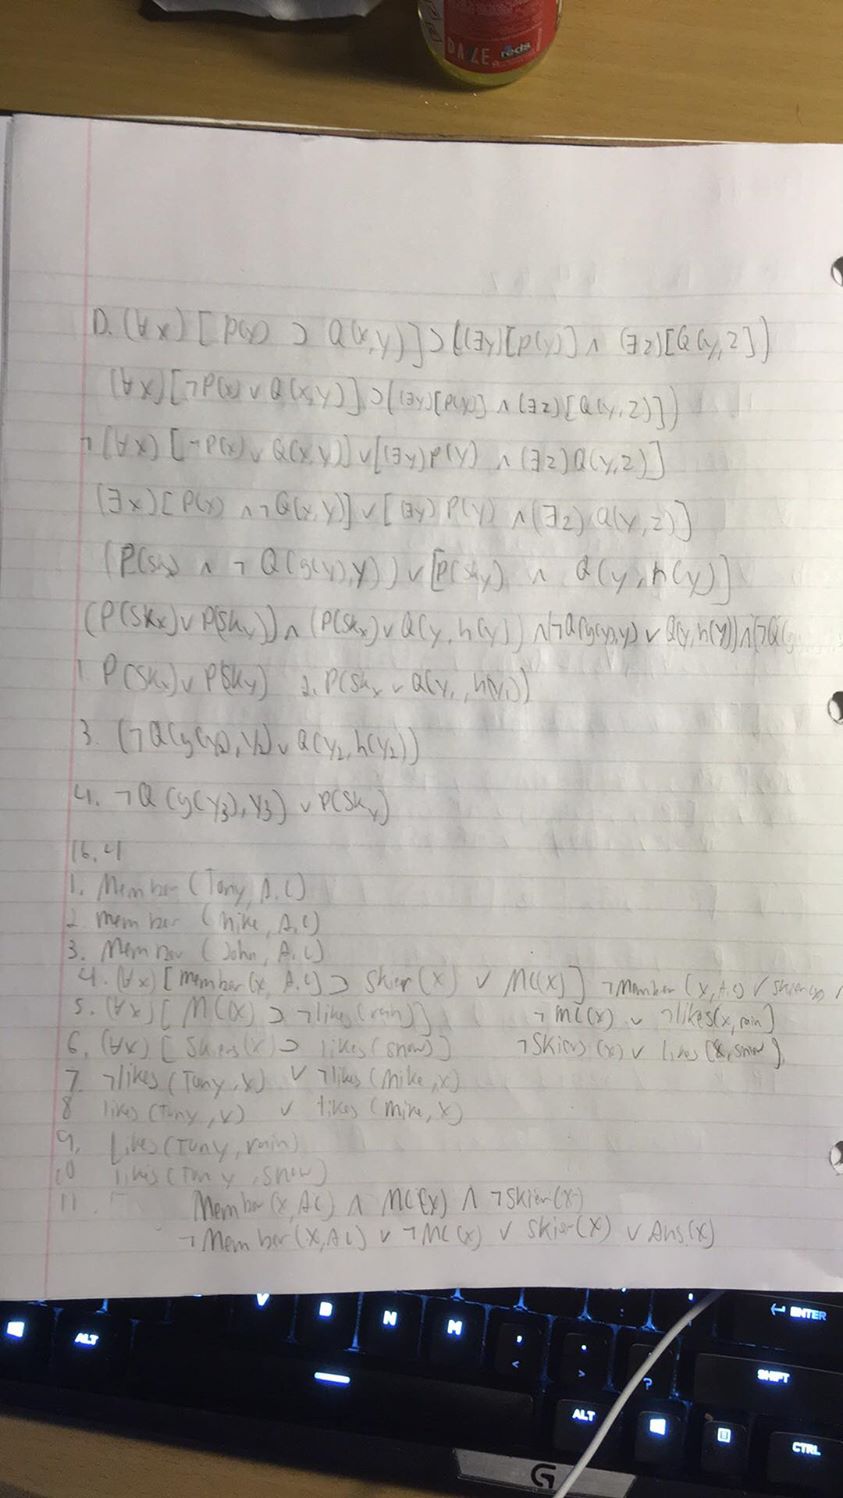 DAZE reds
D. (∀x)[P(x) ⊃ Q(x,y)] ⊃ ((∃y)[P(y)] ∧ (∃z)[Q(y,z])
(∀x)[¬P(x) ∨ Q(x,y)] ⊃ ((∃y)[P(y)] ∧ (∃z)[Q(y,z)])
¬(∀x)[¬P(x) ∨ Q(x,y)] ∨ [(∃y)P(y) ∧ (∃z)Q(y,z)]
(∃x)[P(x) ∧ ¬Q(x,y)] ∨ [(∃y)P(y) ∧ (∃z)Q(y,z)]
(P(skx) ∧ ¬Q(g(y),y)) ∨ [P(sky) ∧ Q(y,h(y)]
(P(skx) ∨ P(sky)) ∧ (P(skx) ∨ Q(y,h(y)) ∧ (¬Q(g(y),y) ∨ Q(y,h(y)) ∧ (¬Q(g
1 P(skx) ∨ P(sky) 2. P(skx ∨ Q(y1,h(y1))
3. (¬Q(g(y2),y2) ∨ Q(y2,h(y2))
4. ¬Q(g(y3),y3) ∨ P(sky)
16.4
1. Member(Tony, A.C)
2. member (Mike, A.C)
3. Member (John, A.C)
4. (∀x)[member(x, A.C) ⊃ Skier(x) ∨ MC(x)] ¬Member(x, A.C) ∨ Skier(x)
5. (∀x)[MC(x) ⊃ ¬likes(rain)] ¬MC(x) ∨ ¬likes(x,rain)
6. (∀x)[Skiers(x) ⊃ likes(snow)] ¬Skiers(x) ∨ likes(x,snow)
7. ¬likes(Tony,x) ∨ ¬likes(Mike,x)
8 likes(Tony,x) ∨ likes(Mike,x)
9. Likes(Tony,rain)
10 likes(Tony,snow)
11. Member(x,AC) ∧ MC(x) ∧ ¬Skier(x)
¬Member(x,AC) ∨ ¬MC(x) ∨ Skier(x) ∨ Ans(x)
ALT
V
B
N
M
, <
. >
?
ENTER
SHIFT
ALT
CTRL
G